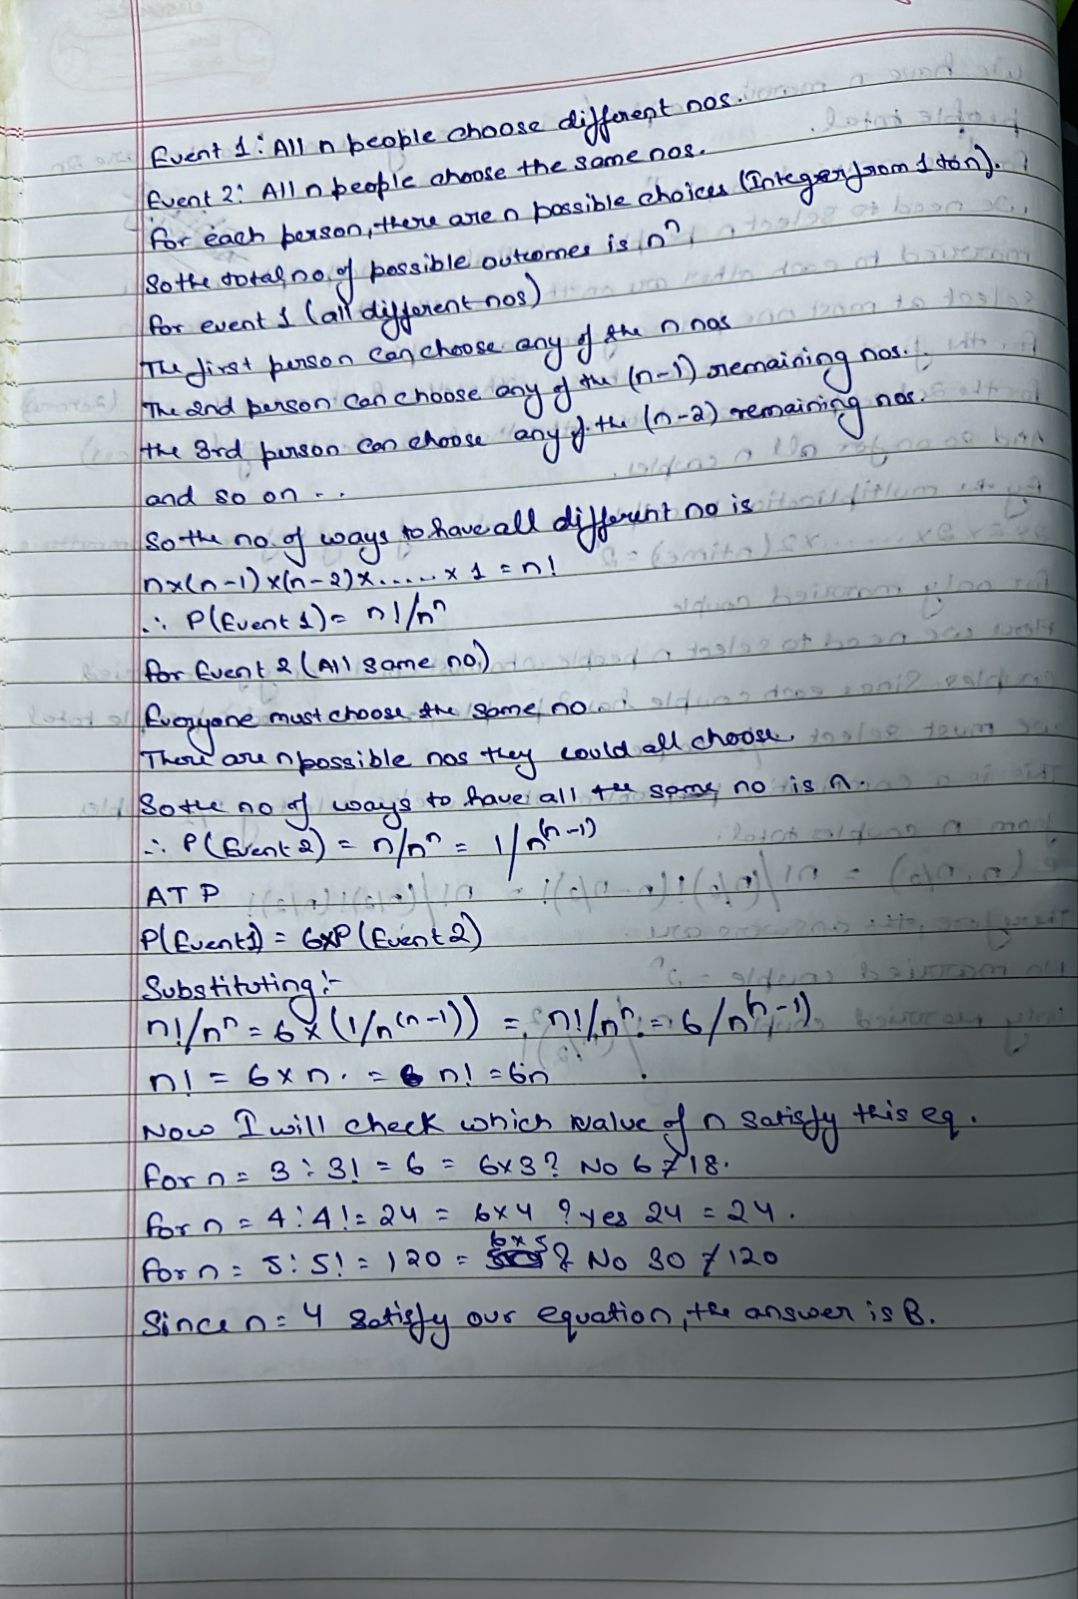 Event 1: All n people choose different nos.
Event 2: All n people choose the same nos.
for each person, there are n possible choices (Integer from 1 to n).
So the total no. of possible outcomes is n^n
for event 1 (all different nos)
The first person can choose any of the n nos
The 2nd person can choose any of the (n-1) remaining nos.
the 3rd person can choose any of the (n-2) remaining nos.
and so on . .
So the no. of ways to have all different no is
n×(n-1)×(n-2)×.....×1 = n!
∴ P(Event 1) = n!/n^n
for Event 2 (All same no)
Everyone must choose the same no.
There are n possible nos they could all choose.
So the no of ways to have all the same no is n.
∴ P(Event 2) = n/n^n = 1/n^(n-1)
ATP
P(Event1) = 6×P(Event 2)
Substituting:-
n!/n^n = 6×(1/n^(n-1)) = n!/n^n = 6/n^(n-1)
n! = 6×n. = n! = 6n
Now I will check which value of n satisfy this eq.
for n = 3: 3! = 6 = 6×3? No 6≠18.
for n = 4: 4! = 24 = 6×4 ? yes 24 = 24.
for n = 5: 5! = 120 = 6×5? No 30 ≠ 120
Since n = 4 satisfy our equation, the answer is B.